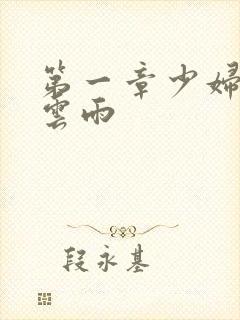 第一章少婦
雲雨
段永基